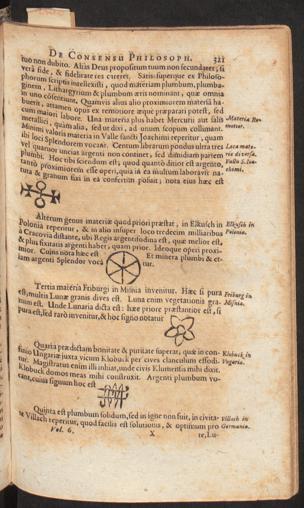 DE CONSENSU PHILOSOPH. 321
tuo non dubito. Aliis Deus propositum tuum non secundaret, si
verâ fide, & fidelitate res careret. Satis superque ex Philoso-
phorum scriptis intellexisti, quod materiam plumbum, plumba-
ginem, Lithargyrium & plumbum æris nominant, quæ omnia
uno consentiunt. Quamvis alius alio proximiorem materiâ ha-
buerit, attamen opus ex remotiore æquè præparari potest, sed
cum majori labore. Una materia plus habet Mercurii aut salis
metallici, quam alia, sed ut dixi, ad unum scopum collimant.
Materia Re-
motior.
Minimi valoris materia in Valle sancti Joachimi reperitur, quam
ibi loci Splendorem vocant. Centum librarum pondus ultra tres
vel quatuor uncias argenti non continet, sed dimidiam partem
plumbi. Hoc tibi sciendum est; quod quantò ditior est argento,
tantò proximiorem esse operi, quia in ea multum laboravit na-
tura & granum fixi in ea confertim posuit; nota ejus hæc est
Loca mate-
riæ diversa.
Vallis S. Joa-
chimi.
Alterum genus materiæ quod priori præstat, in Elkusch in
Polonia reperitur, & in alio insuper loco tredecim milliaribus
à Cracovia distante, ubi Regis argentifodina est, quæ melior est,
& plus fixatais argenti habet; quam prior. Ideoque operi proxi-
mior. Cujus nota hæc est Et minera plumbi & et-
iam argenti Splendor voca tur.
Elkusch in
Polonia.
Tertia materia Friburgi in Misnia invenitur. Hæc si pura
est, multis Lunæ granis dives est. Luna enim vegetationis gra-
num est. Unde Lunaria dicta est: hæc priore præstantior est, si
pura est, sed rarò invenitur, & hoc signo notatur
Friburg in
Misnia.
Quarta prædictam bonitate & puritate superat, quæ in con-
finio Ungariæ juxta vicum Klobuck per cives clanculum effodi-
tur. Magistratus enim illi inhiat, unde civis Klumensis mihi dixit.
Klobuck domos meas mihi construxit. Argenti plumbum vo-
cant, cuius signum hoc est
Klobuck in
Ungaria.
Quinta est plumbum solidum, sed in igne non fuit, in civita-
te Villach reperitur, quod facilis est solutionis, & optimum pro
Villach in
Germania.
Vol. 6. X te, Lu-